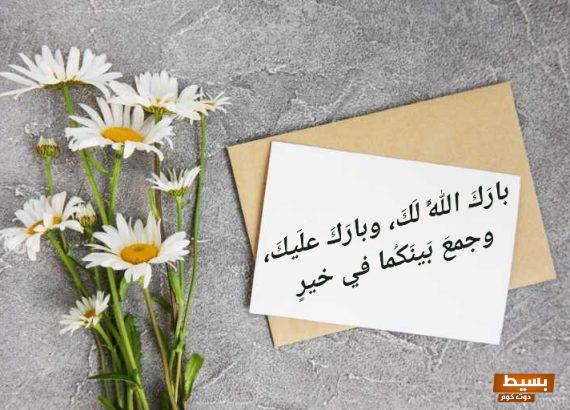 بارَكَ اللهُ لَكَ، وبارَكَ علَيكَ،
وجمعَ بَينَكُما في خيرٍ
بسيط
دوت كوم